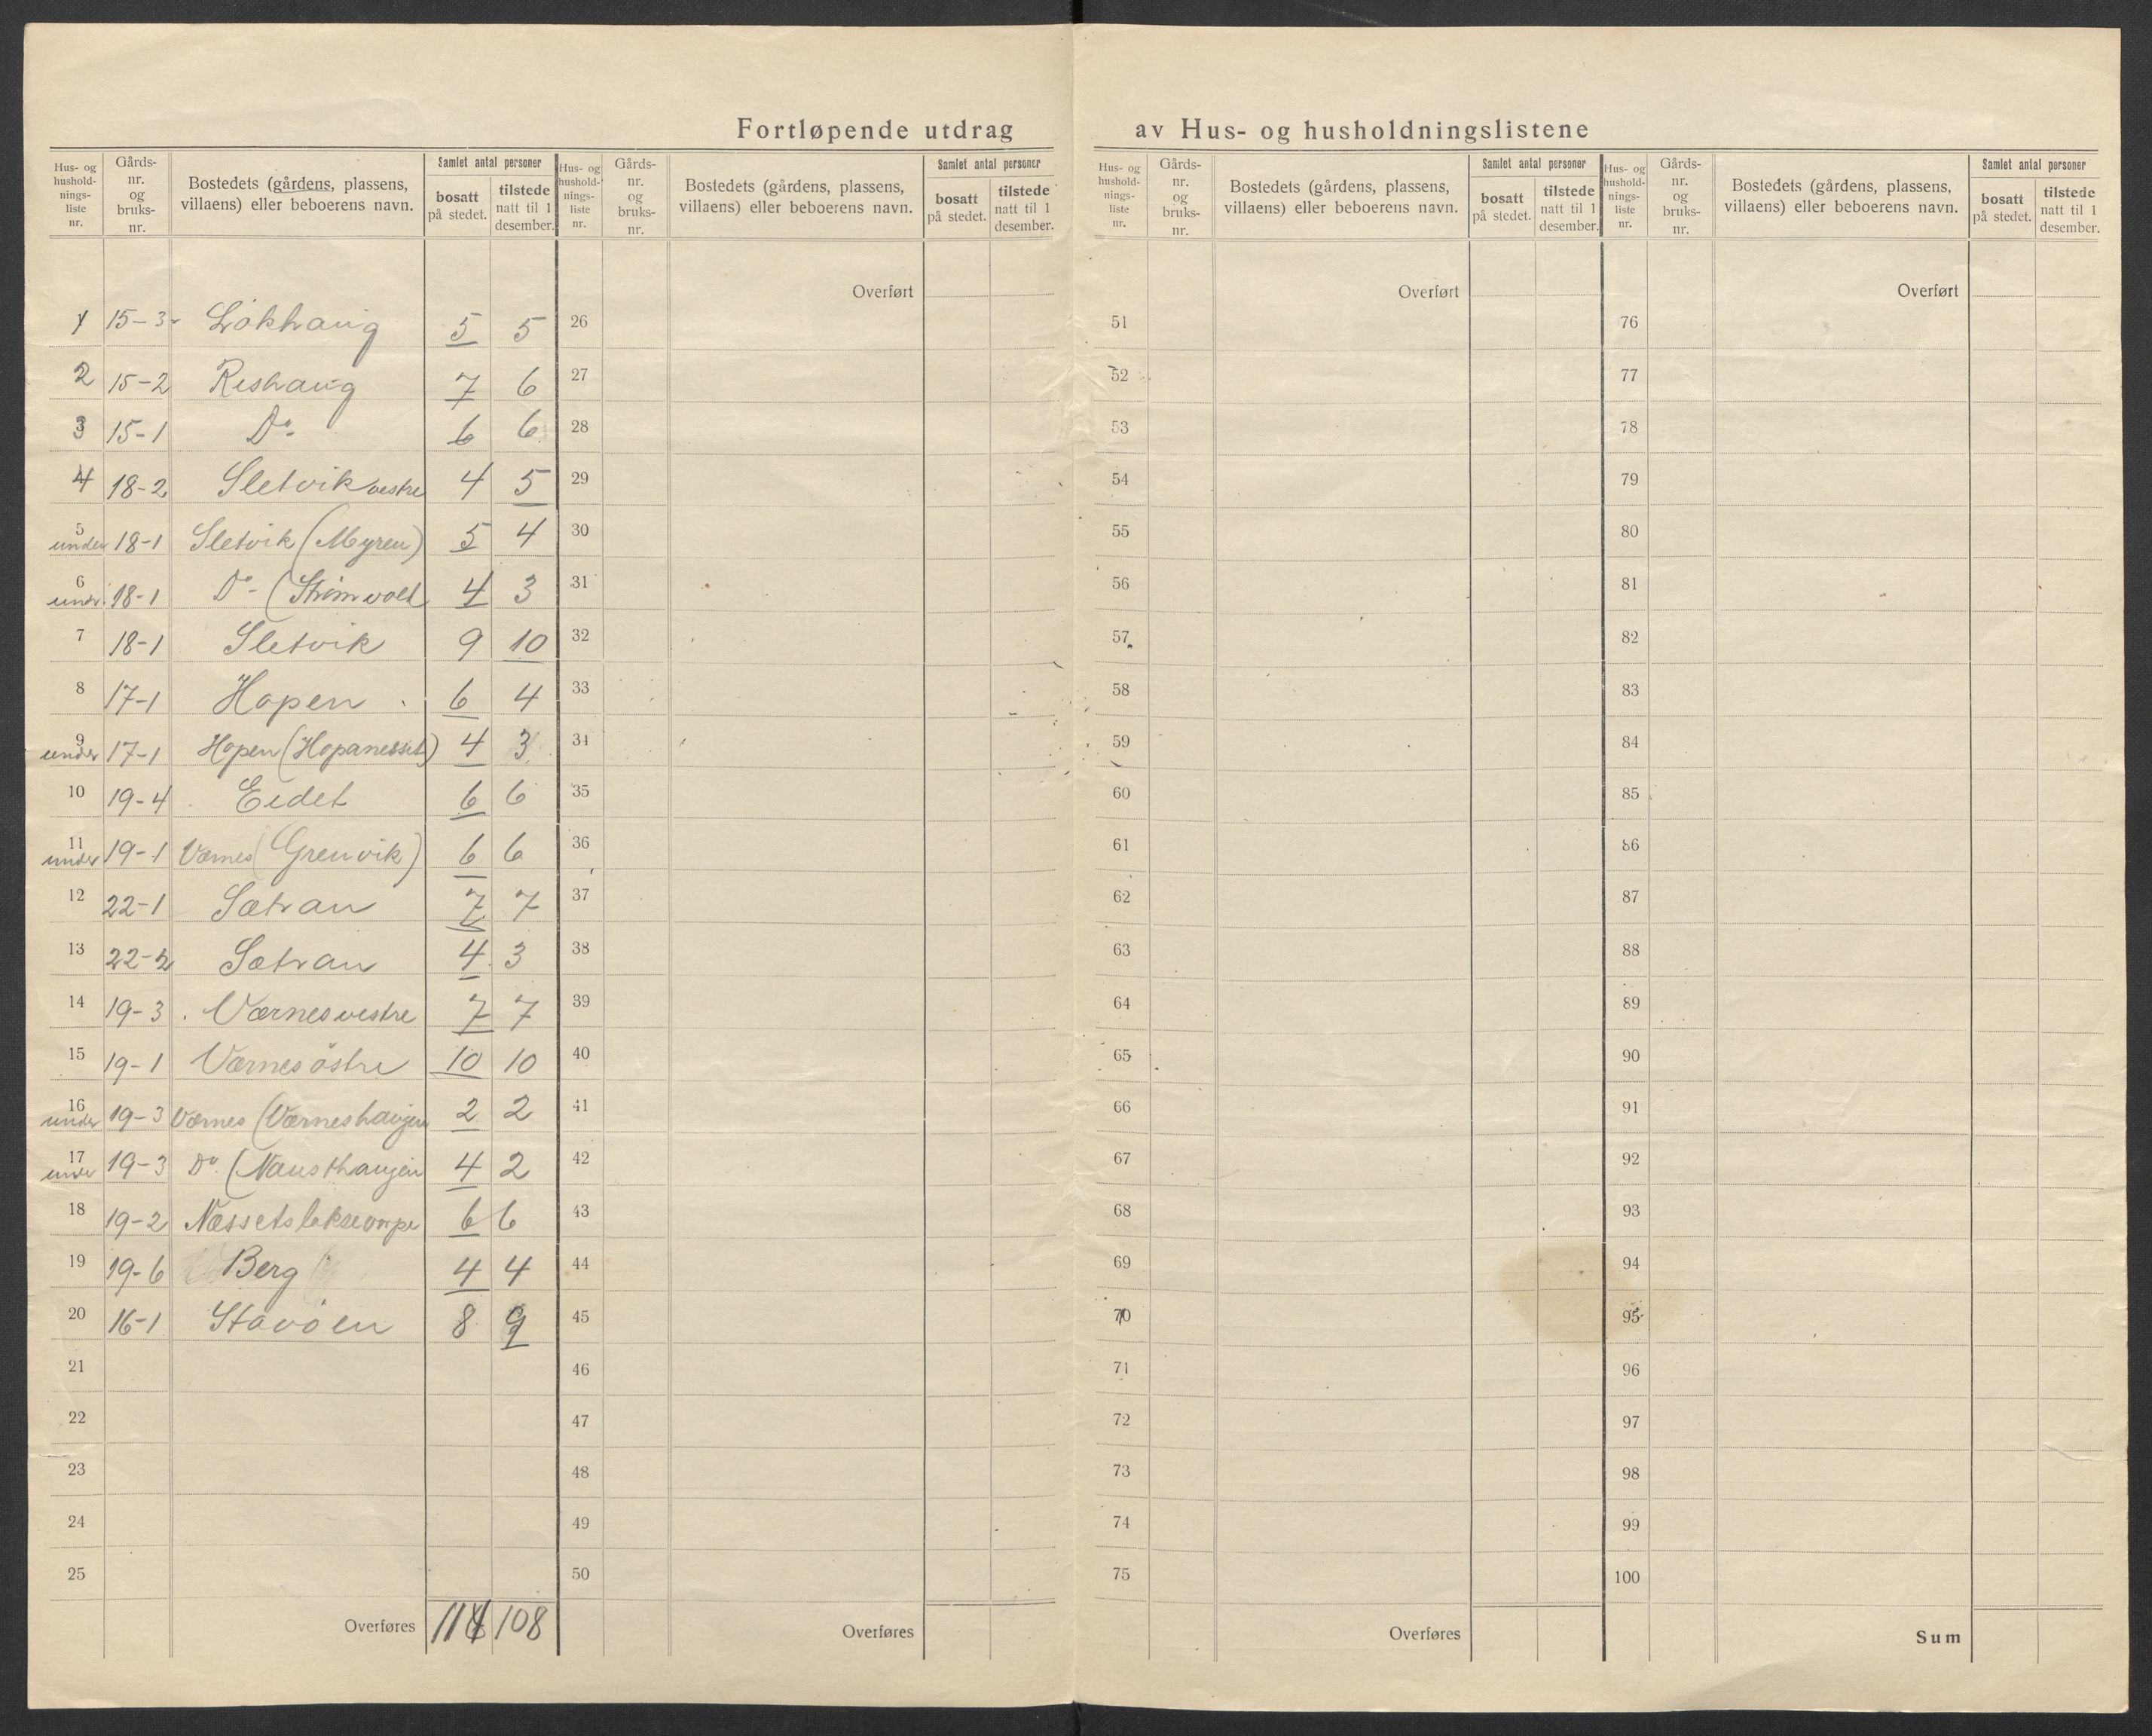 Fortløpende utdrag av Hus- og husholdningslistene
Hus- og hushold- nings- liste nr. | Gårds- nr. og bruks- nr. | Bostedets (gårdens, plassens, villaens) eller beboerens navn. | Samlet antal personer | bosatt på stedet. | tilstede natt til 1 desember.
1 15-3 Lökhaug 5 5
2 15-2 Reshaug 7 6
3 15-1 Do- 6 6
4 18-2 Sletvik vestre 4 5
5 under 18-1 Sletvik (Myren) 5 4
6 under 18-1 Do- (Strömvold 4 3
7 18-1 Sletvik 9 10
8 17-1 Hopen 6 4
9 under 17-1 Hopen (Hopanesset) 4 3
10 19-4 Eidet 6 6
11 under 19-1 Værnes (Grenvik) 6 6
12 22-1 Sætran 7 7
13 22-2 Sætran 4 3
14 19-3 Værnes vestre 7 7
15 19-1 Værnes östre 10 10
16 under 19-3 Værnes (Værneshaugen 2 2
17 under 19-3 Do (Nausthaugen 4 2
18 19-2 Næssets 6 6
19 19-6 Berg 4 4
20 16-1 Stavöen 8 9
21
22
23
24
25
Overføres 114 108
Hus- og hushold- nings- liste nr. | Gårds- nr. og bruks- nr. | Bostedets (gårdens, plassens, villaens) eller beboerens navn. | Samlet antal personer | bosatt på stedet. | tilstede natt til 1 desember.
Overført
26
27
28
29
30
31
32
33
34
35
36
37
38
39
40
41
42
43
44
45
46
47
48
49
50
Overføres
Hus- og hushold- nings- liste nr. | Gårds- nr. og bruks- nr. | Bostedets (gårdens, plassens, villaens) eller beboerens navn. | Samlet antal personer | bosatt på stedet. | tilstede natt til 1 desember.
Overført
51
52
53
54
55
56
57
58
59
60
61
62
63
64
65
66
67
68
69
70
71
72
73
74
75
Overføres
Hus- og hushold- nings- liste nr. | Gårds- nr. og bruks- nr. | Bostedets (gårdens, plassens, villaens) eller beboerens navn. | Samlet antal personer | bosatt på stedet. | tilstede natt til 1 desember.
Overført
76
77
78
79
80
81
82
83
84
85
86
87
88
89
90
91
92
93
94
95
96
97
98
99
100
Sum